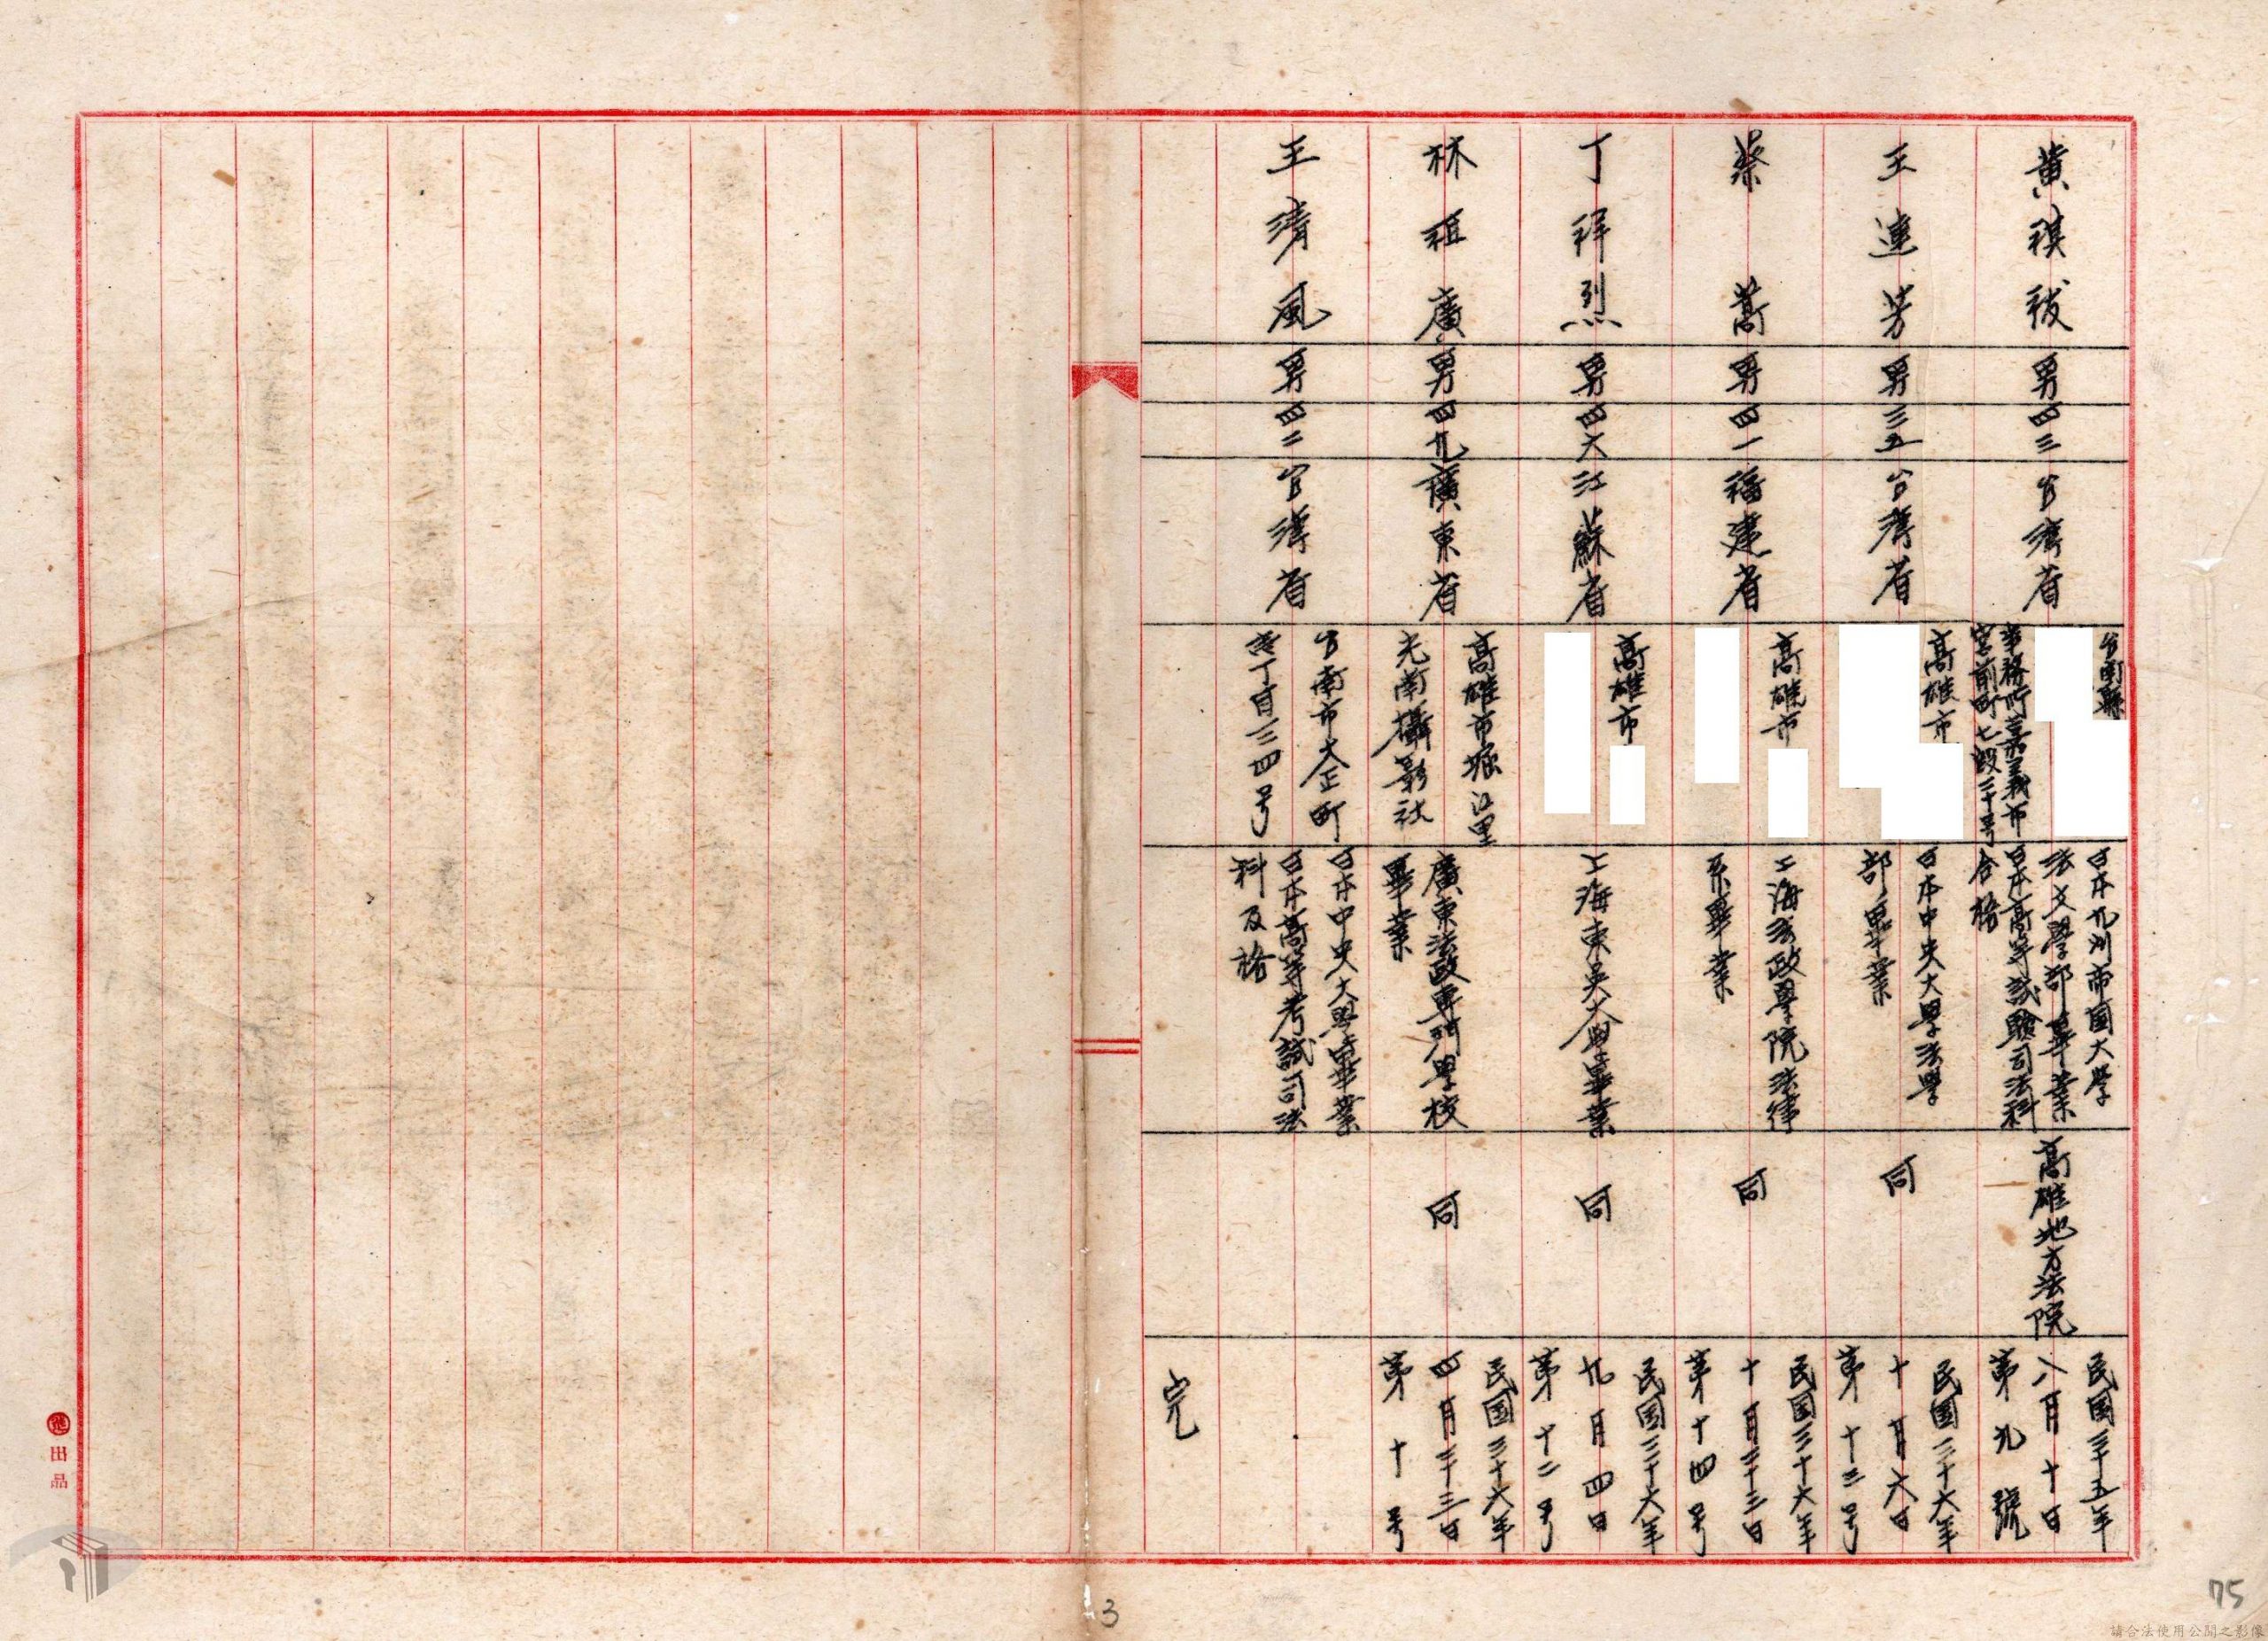 黃祺祓
男
四三
台灣省
台南縣
事務所嘉義市
宮前町七段三十号
日本九州帝国大學
法文學部畢業
日本高等試驗司法科
合格
高雄地方法院
民国三十五年
八月十日
第九號
王連芳
男
三五
台灣省
高雄市
日本中央大學法學
部畢業
同
民國三十六年
十月六日
第十三号
蔡蒿
男
四一
福建省
高雄市
上海法政學院法律
系畢業
同
民国三十六年
十月二十三日
第十四号
丁祥烈
男
四六
江蘇省
高雄市
上海東吳大學畢業
同
民国三十六年
九月四日
第十二号
林祖廣
男
四九
廣東省
高雄市堀江里
光南攝影社
廣東法政專門學校
畢業
同
民国三十六年
四月二十三日
第十号
王清風
男
四二
台灣省
台南市大正町
壱丁目三四号
日本中央大學畢業
日本高等考試司法
科及格
完
出品
3
75
請合法使用公開之影像